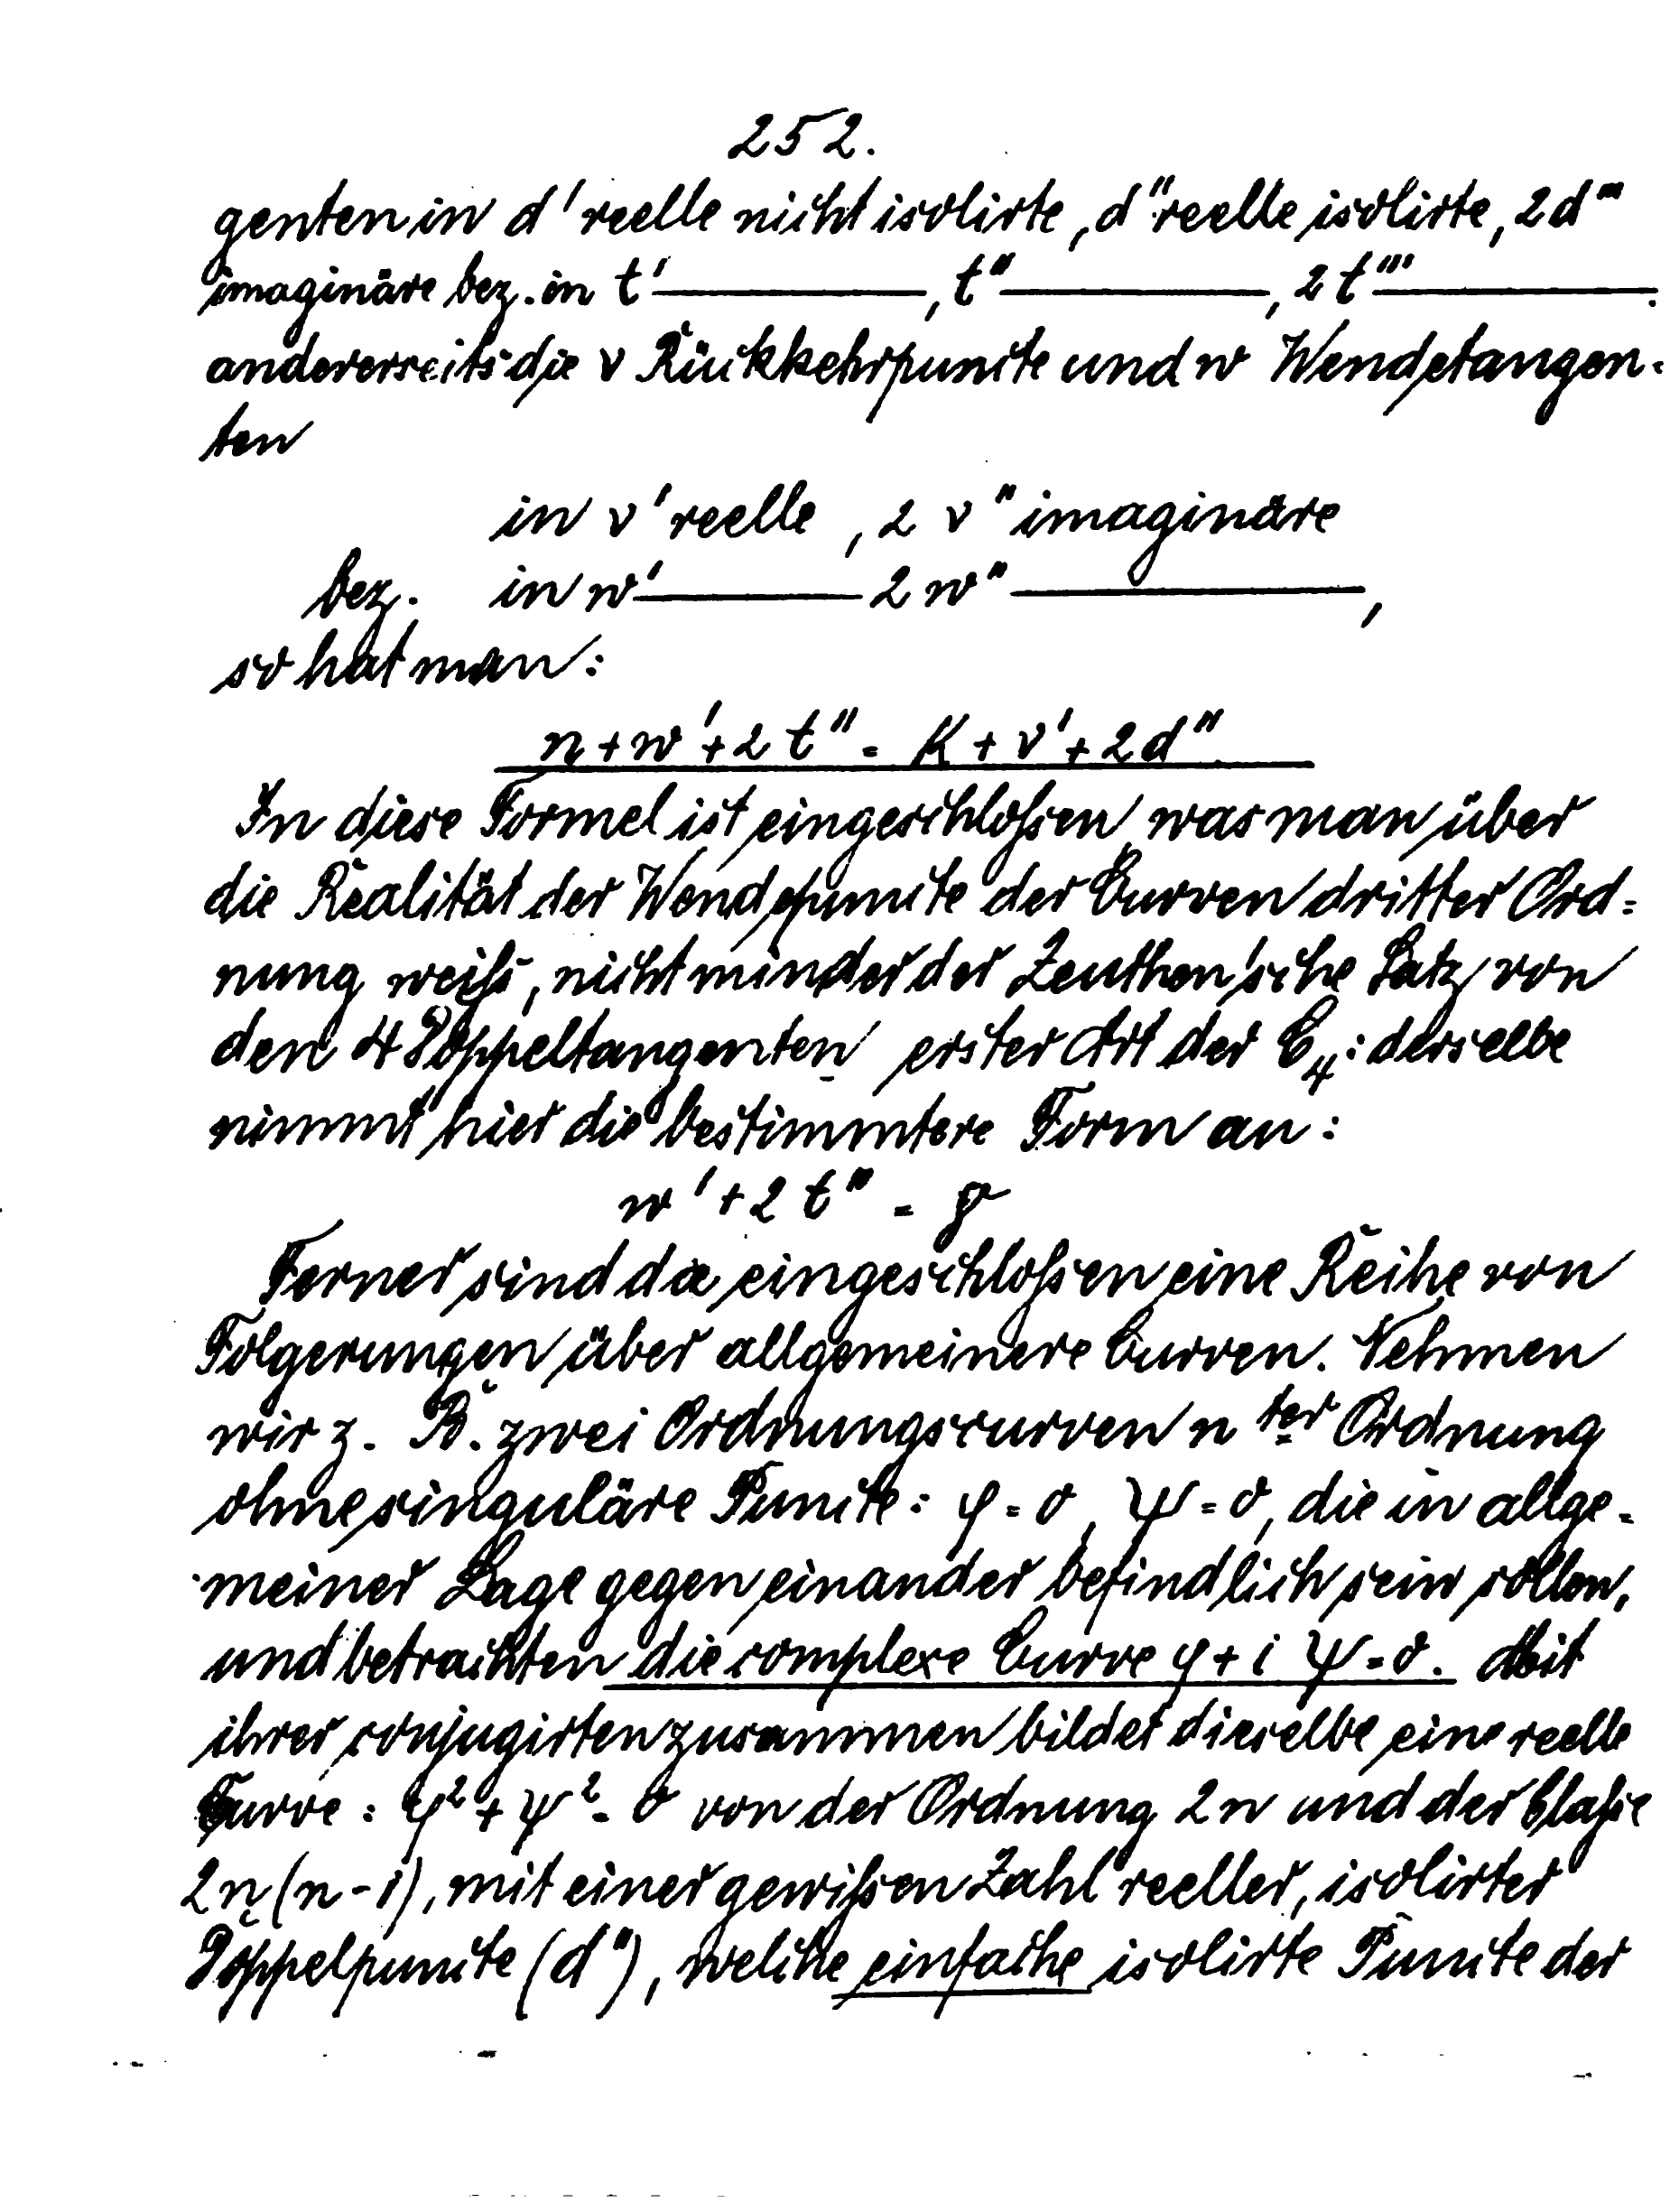 252.
genten in d' reelle nicht isolirte, d'' reelle isolirte, 2d'''
imaginäre bez. in t' ————, t'' ————, 2t''' ————.
andererseits die v Rückkehrpuncte und w Wendetangen-
ten
in v' reelle, 2 v'' imaginäre
bez. in w' ———— 2 w'' ————,
so hat man:
n + w' + 2 t'' = K + v' + 2 d''.
In diese Formel ist eingeschloßen, was man über
die Realität der Wendepuncte der Curven dritter Ord-
nung weiß, nicht minder der Zeuthen'sche Satz von
den 4 Doppeltangenten erster Art der C₄: derselbe
nimmt hier die bestimmtere Form an:
w' + 2 t'' = 8
Ferner sind da eingeschloßen eine Reihe von
Folgerungen über allgemeinere Curven. Nehmen
wir z. B. zwei Ordnungscurven n ter Ordnung
ohne singuläre Puncte: φ = 0, ψ = 0, die in allge-
meiner Lage gegen einander befindlich sein sollen,
und betrachten die complexe Curve φ + i ψ = 0. Mit
ihrer conjugirten zusammen bildet dieselbe eine reelle
Curve: φ² + ψ² = 0 von der Ordnung 2n und der Claße
2n(n-1), mit einer gewißen Zahl reeller, isolirter
Doppelpuncte (d''), welche einfache isolirte Puncte der